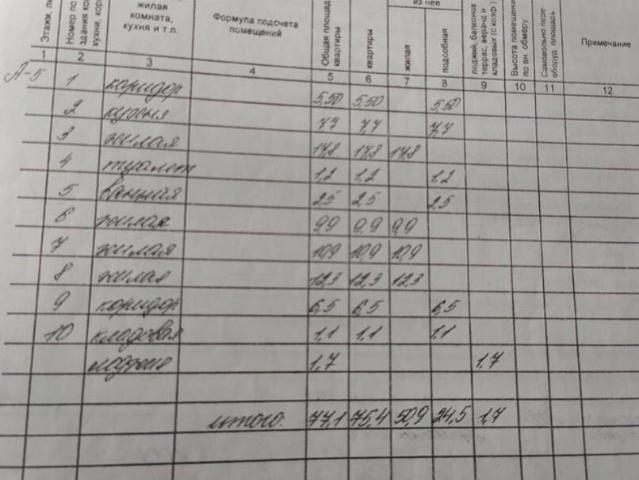 Этажи, ли
Номер по
здания ко
кухни, кор
жилая
комната,
кухня и т.п.
Формула подсчета
помещений
Общая площадь
квартиры
квартиры
из нее
жилая
подсобная
лоджий, балконов
террас, веранд и
кладовых (с коэф.)
Высота помещени
по вн. обмеру
Самовольно пере
оборуд. площадь
Примечание
1 2 3 4 5 6 7 8 9 10 11 12
А-5 1 коридор 5,50 5,50 5,50
2 кухня 7,7 7,7 7,7
3 жилая 17,8 17,8 17,8
4 туалет 1,2 1,2 1,2
5 ванная 2,5 2,5 2,5
6 жилая 9,9 9,9 9,9
7 жилая 10,9 10,9 10,9
8 жилая 12,3 12,3 12,3
9 коридор 6,5 6,5 6,5
10 кладовая 1,1 1,1 1,1
лоджия 1,7 1,7
итого: 77,1 75,4 50,9 24,5 1,7